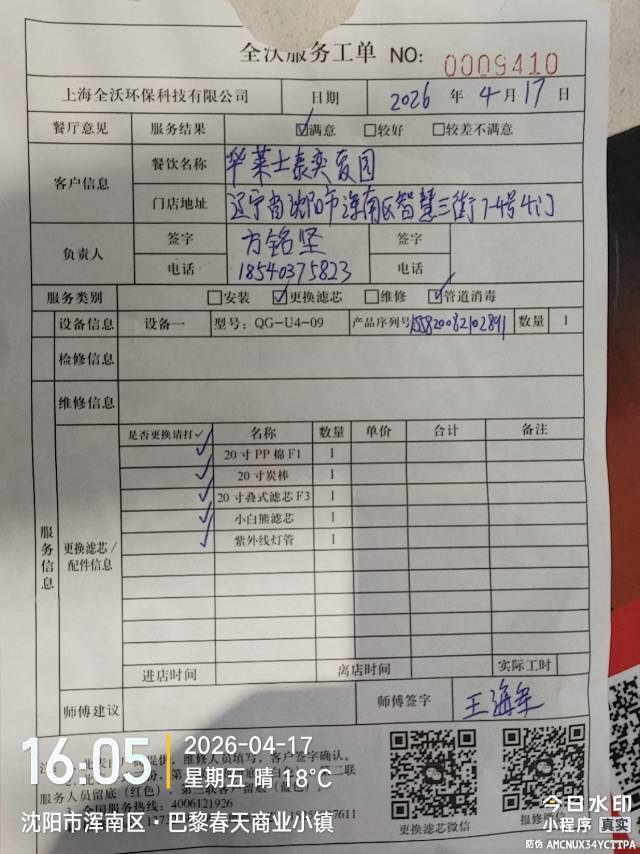 全沃服务工单 NO: 0009410
上海全沃环保科技有限公司 日期 2026 年 4 月 17 日
餐厅意见 服务结果 ☑满意 □较好 □较差不满意
客户信息 餐饮名称 华莱士泰奕夏园
门店地址 辽宁省沈阳市浑南区智慧三街7-4号4门
负责人 签字 方铭坚 签字
电话 18540375823 电话
服务类别 □安装 ☑更换滤芯 □维修 ☑管道消毒
设备信息 设备一 型号: QG-U4-09 产品序列号 155820082102891 数量 1
检修信息
维修信息
服务信息
更换滤芯/配件信息
是否更换请打✓ 名称 数量 单价 合计 备注
✓ 20寸PP棉F1 1
✓ 20寸炭棒 1
✓ 20寸叠式滤芯F3 1
✓ 小白熊滤芯 1
✓ 紫外线灯管 1
进店时间 离店时间 实际工时
师傅建议 师傅签字 王海军
服务人员填写,客户签字确认。
服务人员留底(红色)
全国服务热线: 4006121926
更换滤芯微信
16:05
2026-04-17
星期五 晴 18℃
沈阳市浑南区·巴黎春天商业小镇
今日水印
小程序 真实
防伪 AMCNUX34YCTTPA